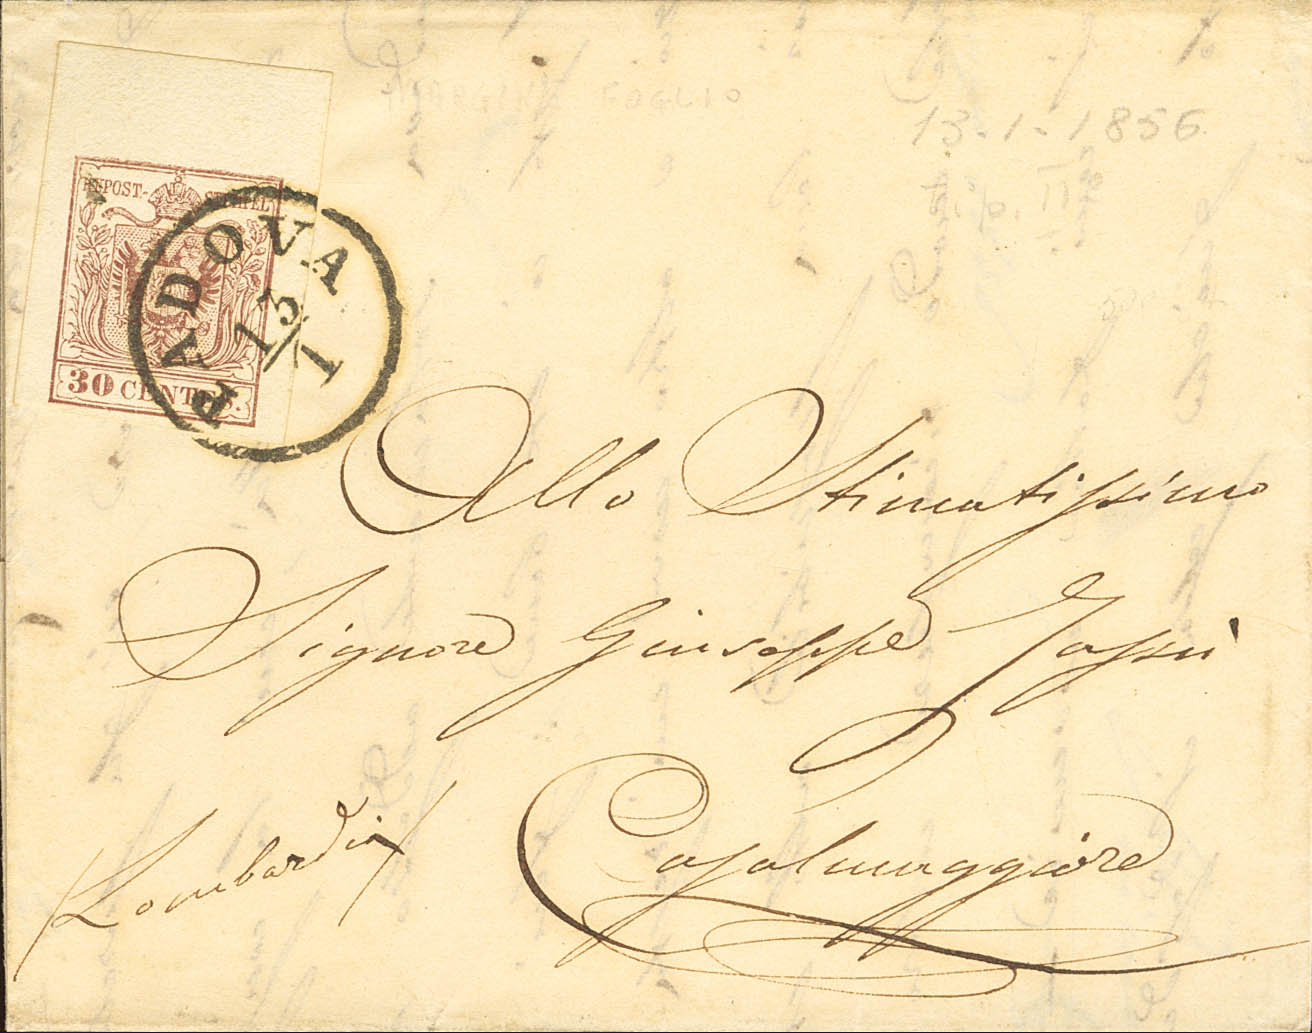 MARGINE FOGLIO
13-1-1856
tip. III
KK POST-STEMPEL
30 CENTES.
PADOVA
13/1
Allo Stimatissimo
Signore Giuseppe
Casalmaggiore
Lombardia